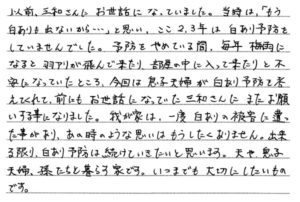 以前、三和さんに お世話になっていました。当時は、「もう
白ありも出ないから…」と思い、ここ2,3年は 白あり予防を
していませんでした。予防をやめている間、毎年 梅雨に
なると 羽アリが飛んで来たり 部屋の中に入って来たりと不
安になっていたところ、今回は息子夫婦が 白あり予防を考
えてくれて、前にも お世話になっていた三和さんに またお願
いする事になりました。我が家は、一度 白ありの被害に遭っ
た事があり、あの時のような思いはもうしたくありません。出来
る限り、白あり予防は続けていきたいと思います。夫や息子
夫婦、孫たちと暮らす家です。いつまでも大切にしたいもの
です。